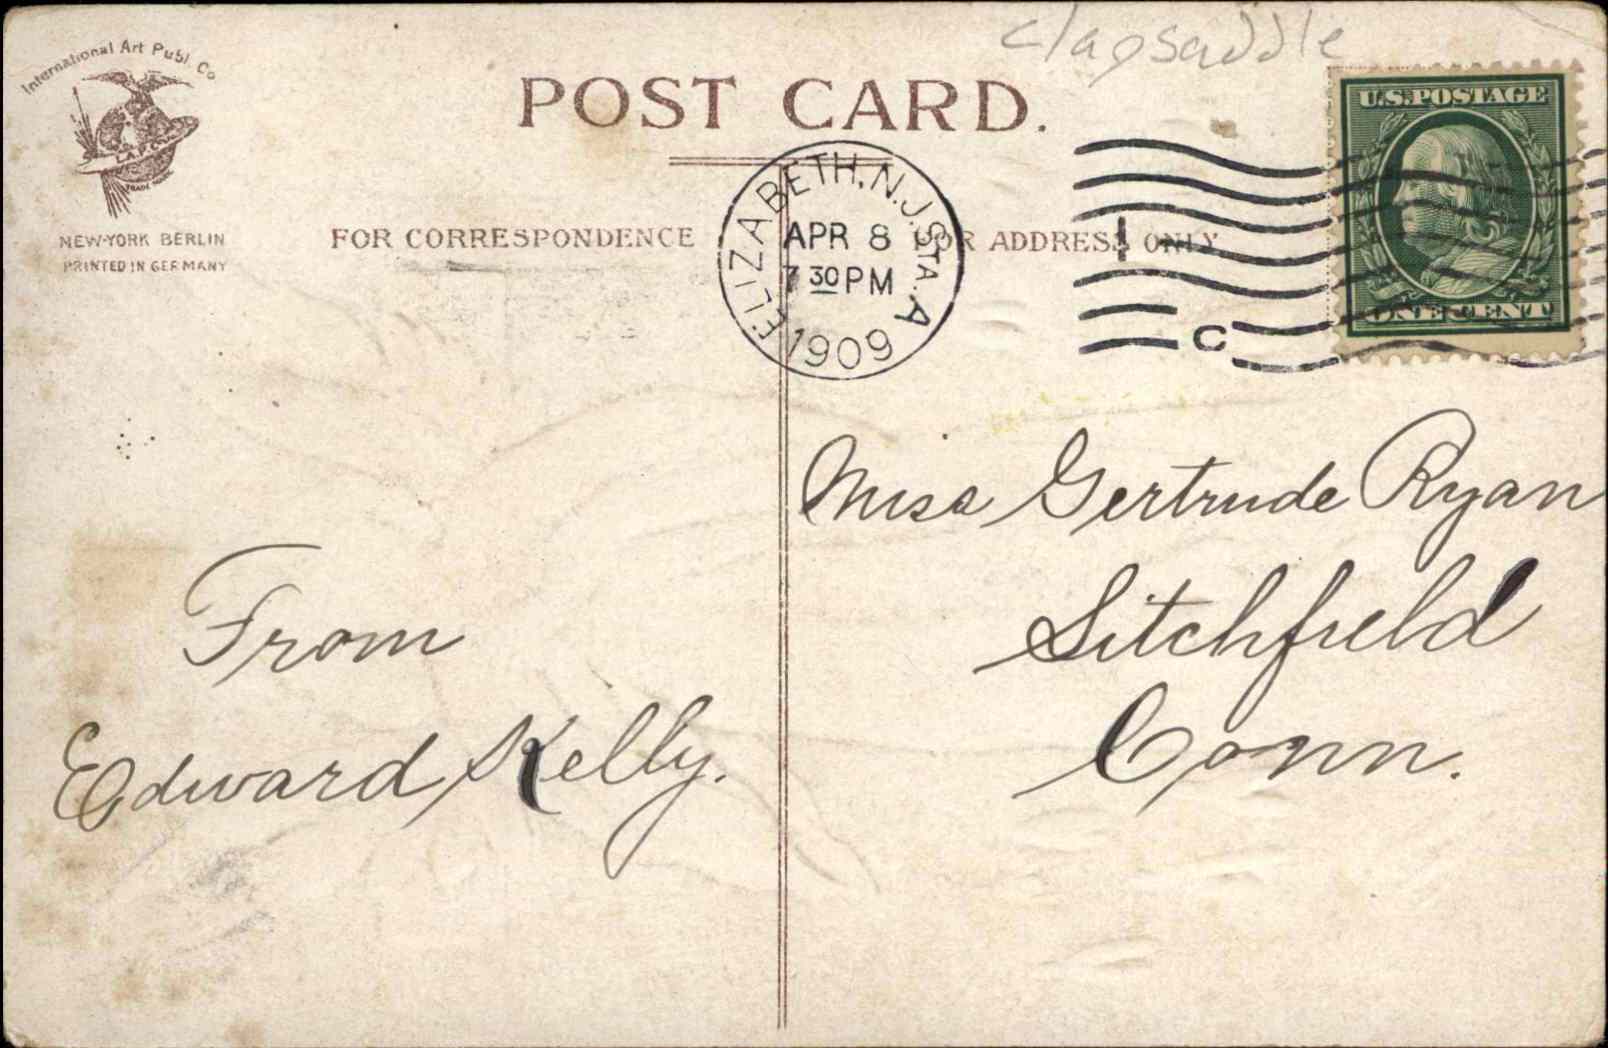 clapsaddle
International Art Publ. Co
I.A.P.C.
TRADE MARK
NEW-YORK BERLIN
PRINTED IN GERMANY
POST CARD.
FOR CORRESPONDENCE
FOR ADDRESS ONLY
ELIZABETH, N.J. STA. A
APR 8
7 30 PM
1909
1
C
U.S. POSTAGE
ONE CENT
Miss Gertrude Ryan
Litchfield
Conn.
From
Edward Kelly.